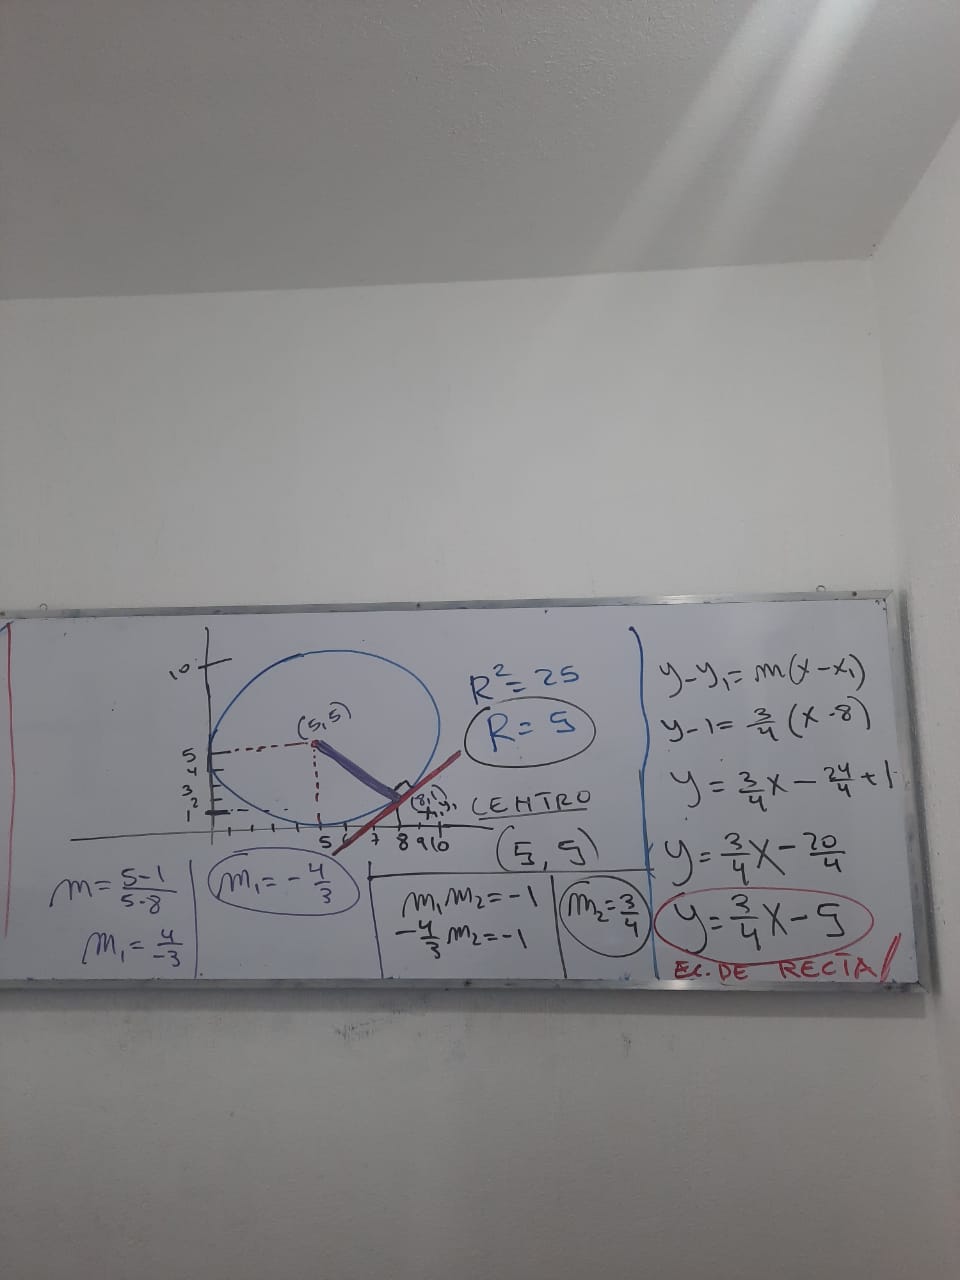 10
(5,5)
5
4
3
2
1
5 6 7 8 9 10
(8,1)
x₁ y₁
R² = 25
R = 5
CENTRO
(5, 5)
m = \frac{5-1}{5-8}
m₁ = \frac{4}{-3}
m₁ = -\frac{4}{3}
m₁ m₂ = -1
-\frac{4}{3} m₂ = -1
m₂ = \frac{3}{4}
y - y₁ = m(x - x₁)
y - 1 = \frac{3}{4} (x - 8)
y = \frac{3}{4}x - \frac{24}{4} + 1
y = \frac{3}{4}x - \frac{20}{4}
y = \frac{3}{4}x - 5
EC. DE RECTA